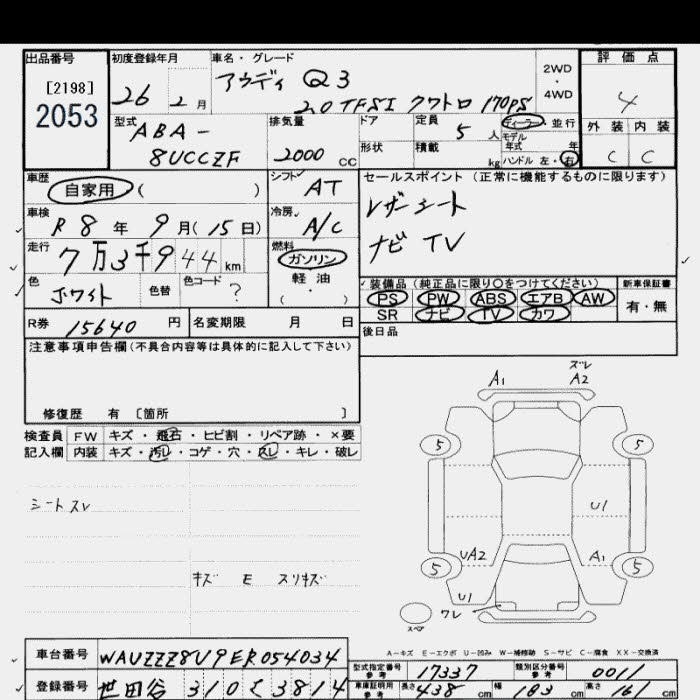 出品番号 初度登録年月 車名・グレード 評価点
[2198] 26年 2月 アウディ Q3 2WD・4WD 4
2053 2.0 TFSI クワトロ 170PS
型式 排気量 ドア 定員 5人 ディーラー・並行 外装 内装
ABA- モデル年式 年
8UCCZF 2000 CC 形状 積載 kg ハンドル 左・右 C C
車歴 自家用 ( ) シフト AT セールスポイント (正常に機能するものに限ります)
車検 R8年 9月(15日) 冷房 A/C レザーシート
走行 7万3千944km 燃料 ガソリン ナビ TV
軽油
色 ホワイト 色替 色コード ? ( ・ ) 装備品 (純正品に限り○をつけてください) 新車保証書
PS PW ABS エアB AW 有・無
R券 15640円 名変期限 月 日 SR ナビ TV カワ
注意事項申告欄(不具合内容等は具体的に記入して下さい) 後日品
修復歴 有 〔箇所 〕
検査員 FW キズ・飛石・ヒビ割・リペア跡・×要
記入欄 内装 キズ・汚レ・コゲ・穴・スレ・キレ・破レ
シートスレ
キズ E スリキズ
ズレ
A1 A2
5 5
U1
UA2 A1
5 5
U1
ワレ
スペア
A-キズ E-エクボ U-凹み W-補修跡 S-サビ C-腐食 XX-交換済
車台番号 WAUZZZ8U9ER054034
型式指定番号 参考 17337 類別区分番号 参考 0011
登録番号 世田谷 310 そ 3814
車庫証明用 参考 長さ 438cm 幅 183cm 高さ 161cm